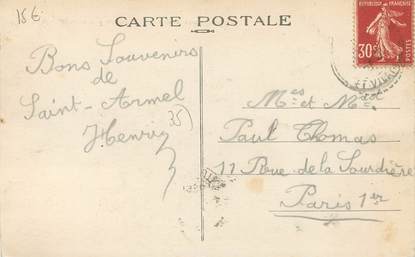 15€
CARTE POSTALE
REPUBLIQUE FRANÇAISE
30c
POSTES
Bons Souvenirs
de
Saint-Armel
Henri
35)
Mes et Mad
Paul Thomas
11 Rue de la Sourdière
Paris 1er